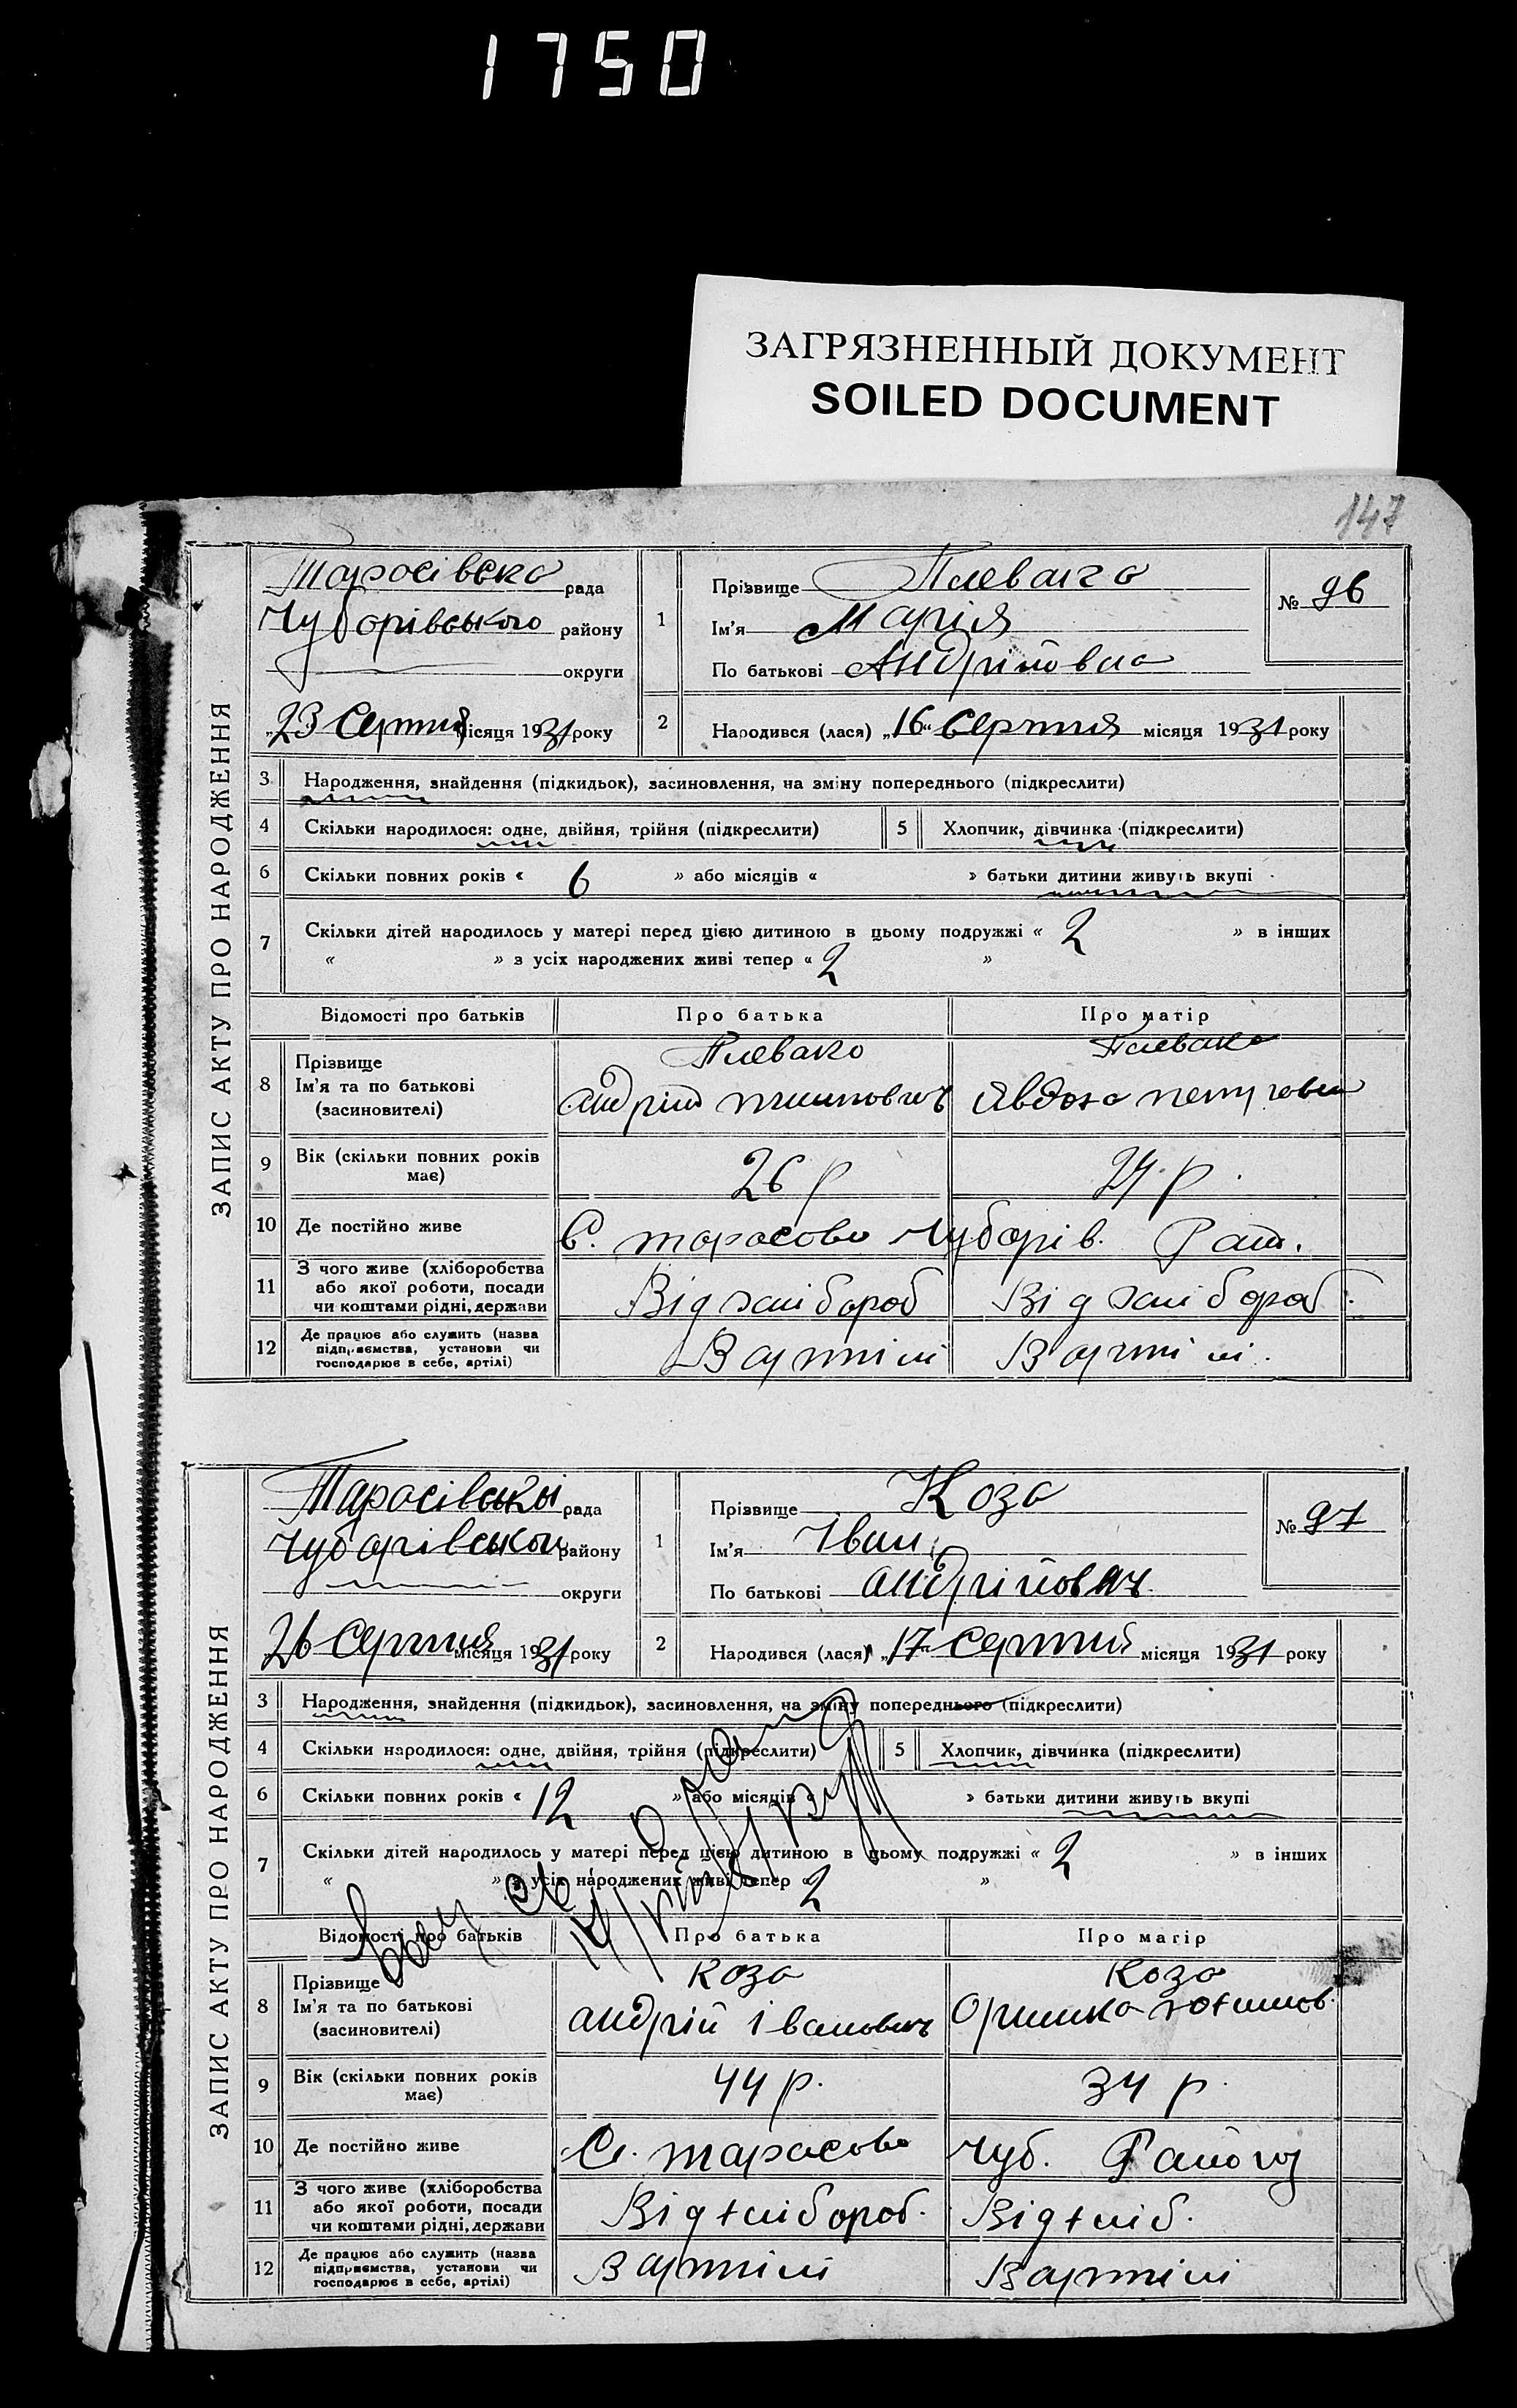 1750
ЗАГРЯЗНЕННЫЙ ДОКУМЕНТ
SOILED DOCUMENT
147
ЗАПИС АКТУ ПРО НАРОДЖЕННЯ
Тарасівська рада
Чубарівського району
округи
„23 Серпня місяця 1931 року
1 Прізвище Плевако
Ім'я Марія
По батькові Андріївна
№ 96
2 Народився (лася) „16" Серпня місяця 1931 року
3 Народження, знайдення (підкидьок), засиновлення, на зміну попереднього (підкреслити)
4 Скільки народилося: одне, двійня, трійня (підкреслити) 5 Хлопчик, дівчинка (підкреслити)
6 Скільки повних років « 6 » або місяців « » батьки дитини живуть вкупі
7 Скільки дітей народилось у матері перед цією дитиною в цьому подружжі « 2 » в інших
« » з усіх народжених живі тепер « 2 »
Відомості про батьків Про батька Про матір
8 Прізвище Плевако Плевако
Ім'я та по батькові Андрій Явдоха
(засновителі)
9 Вік (скільки повних років має) 26 р 24 р.
10 Де постійно живе С. Тарасовка Чубарів. Рай.
11 З чого живе (хліборобства або якої роботи, посади чи коштами рідні, держави Від хлібороб Від хлібороб.
12 Де працює або служить (назва підприємства, установи чи господарює в себе, артілі) В артілі В артілі.
ЗАПИС АКТУ ПРО НАРОДЖЕННЯ
Тарасівськ рада
Чубарівськ району
округи
„26 Серпня місяця 1931 року
1 Прізвище Коза
Ім'я Іван
По батькові Андрійович
№ 97
2 Народився (лася) „17" Серпня місяця 1931 року
3 Народження, знайдення (підкидьок), засиновлення, на зміну попереднього (підкреслити)
4 Скільки народилося: одне, двійня, трійня (підкреслити) 5 Хлопчик, дівчинка (підкреслити)
6 Скільки повних років « 12 » або місяців « » батьки дитини живуть вкупі
7 Скільки дітей народилось у матері перед цією дитиною в цьому подружжі « 2 » в інших
« » з усіх народжених живі тепер « 2 »
Відомості про батьків Про батька Про матір
8 Прізвище Коза Коза
Ім'я та по батькові Андрій Іванович Оришка
(засиновителі)
9 Вік (скільки повних років має) 44 р. 34 р.
10 Де постійно живе С. Тарасовка Чуб. Району
11 З чого живе (хліборобства або якої роботи, посади чи коштами рідні, держави Від хлібороб. Від хліб.
12 Де працює або служить (назва підприємства, установи чи господарює в себе, артілі) В артілі В артілі